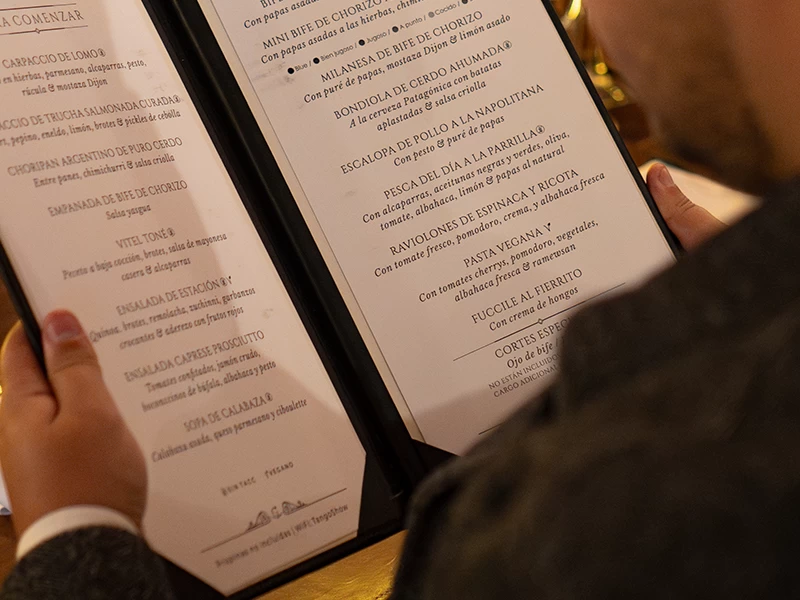 A COMENZAR
CARPACCIO DE LOMO
en hierbas, parmesano, alcaparras, pesto,
rúcula & mostaza Dijon
ACCIO DE TRUCHA SALMONADA CURADA
pepino, eneldo, limón, brotes & pickles de cebolla
CHORIPAN ARGENTINO DE PURO CERDO
Entre panes, chimichurri & salsa criolla
EMPANADA DE BIFE DE CHORIZO
Salsa yasgua
VITEL TONÉ
Peceto a baja cocción, brotes, salsa de mayonesa
casera & alcaparras
ENSALADA DE ESTACIÓN
Quinoa, brotes, remolacha, zuchinni, garbanzos
crocantes & aderezo con frutos rojos
ENSALADA CAPRESE PROSCIUTTO
Tomates confitados, jamón crudo,
bocconcinos de búfala, albahaca y pesto
SOPA DE CALABAZA
Calabaza asada, queso parmesano y ciboulette
SIN TACC VEGANO
Propinas no incluidas | WiFi: TangoShow
Con papas asadas
MINI BIFE DE CHORIZO
Con papas asadas a las hierbas, chim
Blue / Bien jugoso / Jugoso / A punto / Cocido /
MILANESA DE BIFE DE CHORIZO
Con puré de papas, mostaza Dijon & limón asado
BONDIOLA DE CERDO AHUMADA
A la cerveza Patagónica con batatas
aplastadas & salsa criolla
ESCALOPA DE POLLO A LA NAPOLITANA
Con pesto & puré de papas
PESCA DEL DÍA A LA PARRILLA
Con alcaparras, aceitunas negras y verdes, oliva,
tomate, albahaca, limón & papas al natural
RAVIOLONES DE ESPINACA Y RICOTA
Con tomate fresco, pomodoro, crema, y albahaca fresca
PASTA VEGANA
Con tomates cherrys, pomodoro, vegetales,
albahaca fresca & ramewsan
FUCCILE AL FIERRITO
Con crema de hongos
CORTES ESPEC
Ojo de bife
NO ESTÁN INCLUIDO
CARGO ADICIONAL